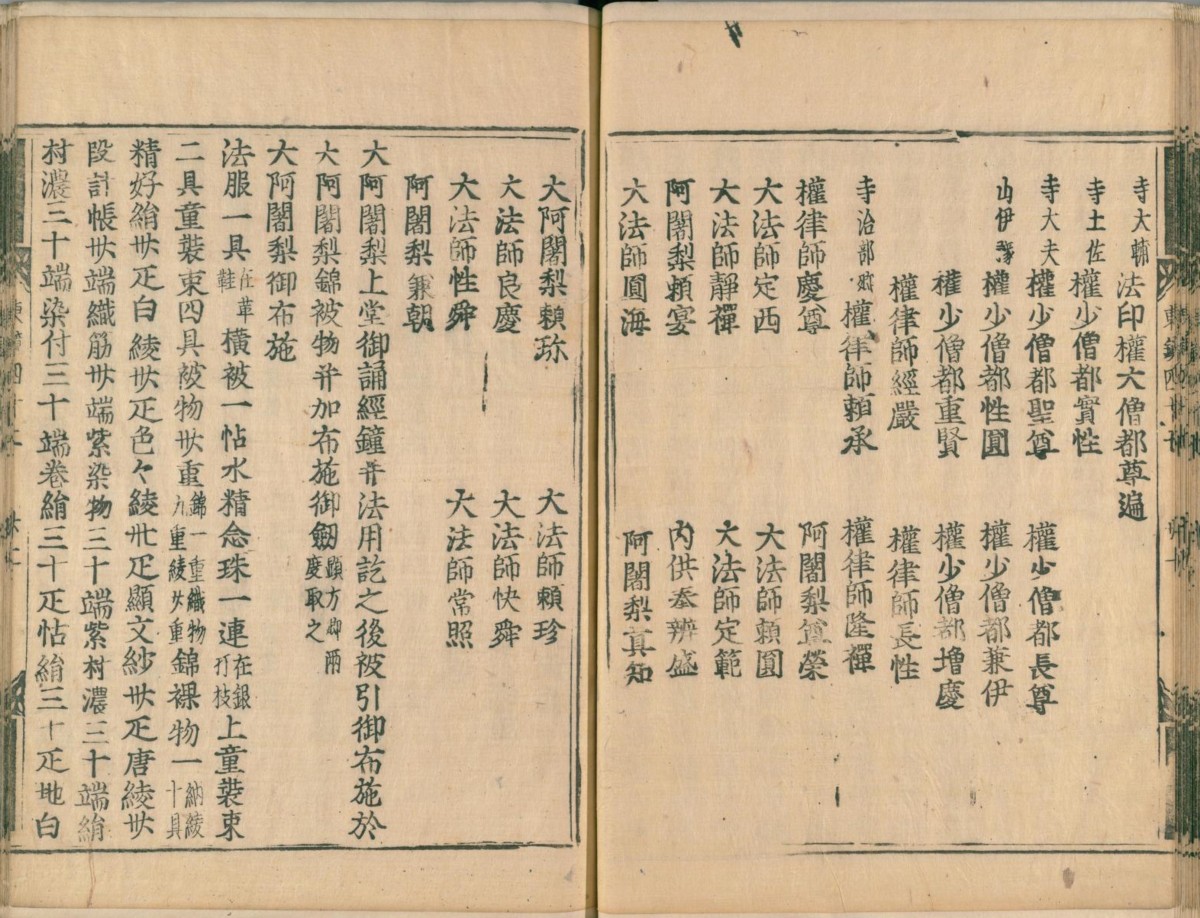 寺大輔 法印權大僧都尊遍
寺土佐 權少僧都實性
寺大夫 權少僧都聖尊 權少僧都長尊
山伊豫 權少僧都性圓 權少僧都兼伊
權少僧都重賢 權少僧都増慶
權律師經嚴 權律師長性
寺治部卿 權律師頼承 權律師隆禪
權律師慶尊 阿闍梨尊榮
大法師定西 大法師頼圓
大法師靜禪 大法師定範
阿闍梨頼宴 内供奉辨盛
大法師圓海 阿闍梨真知
大阿闍梨頼珎 大法師頼珍
大法師良慶 大法師快舜
大法師性舜 大法師常照
阿闍梨兼朝
大阿闍梨上堂御誦經鐘并法用訖之後被引御布施於
大阿闍梨錦被物并加布施御劔顕方卿両度取之
大阿闍梨御布施
法服一具在草鞋横被一帖水精念珠一連在銀打枝上童裝束
二具童裝束四具被物丗重錦一重織物九重綾廿重錦裸物一納綾十具
精好絹丗疋白綾丗疋色々綾丗疋顯文紗丗疋唐綾丗
段計帳丗端織筋丗端紫染物三十端紫村濃三十端絹
村濃三十端染付三十端巻絹三十疋帖絹三十疋地白